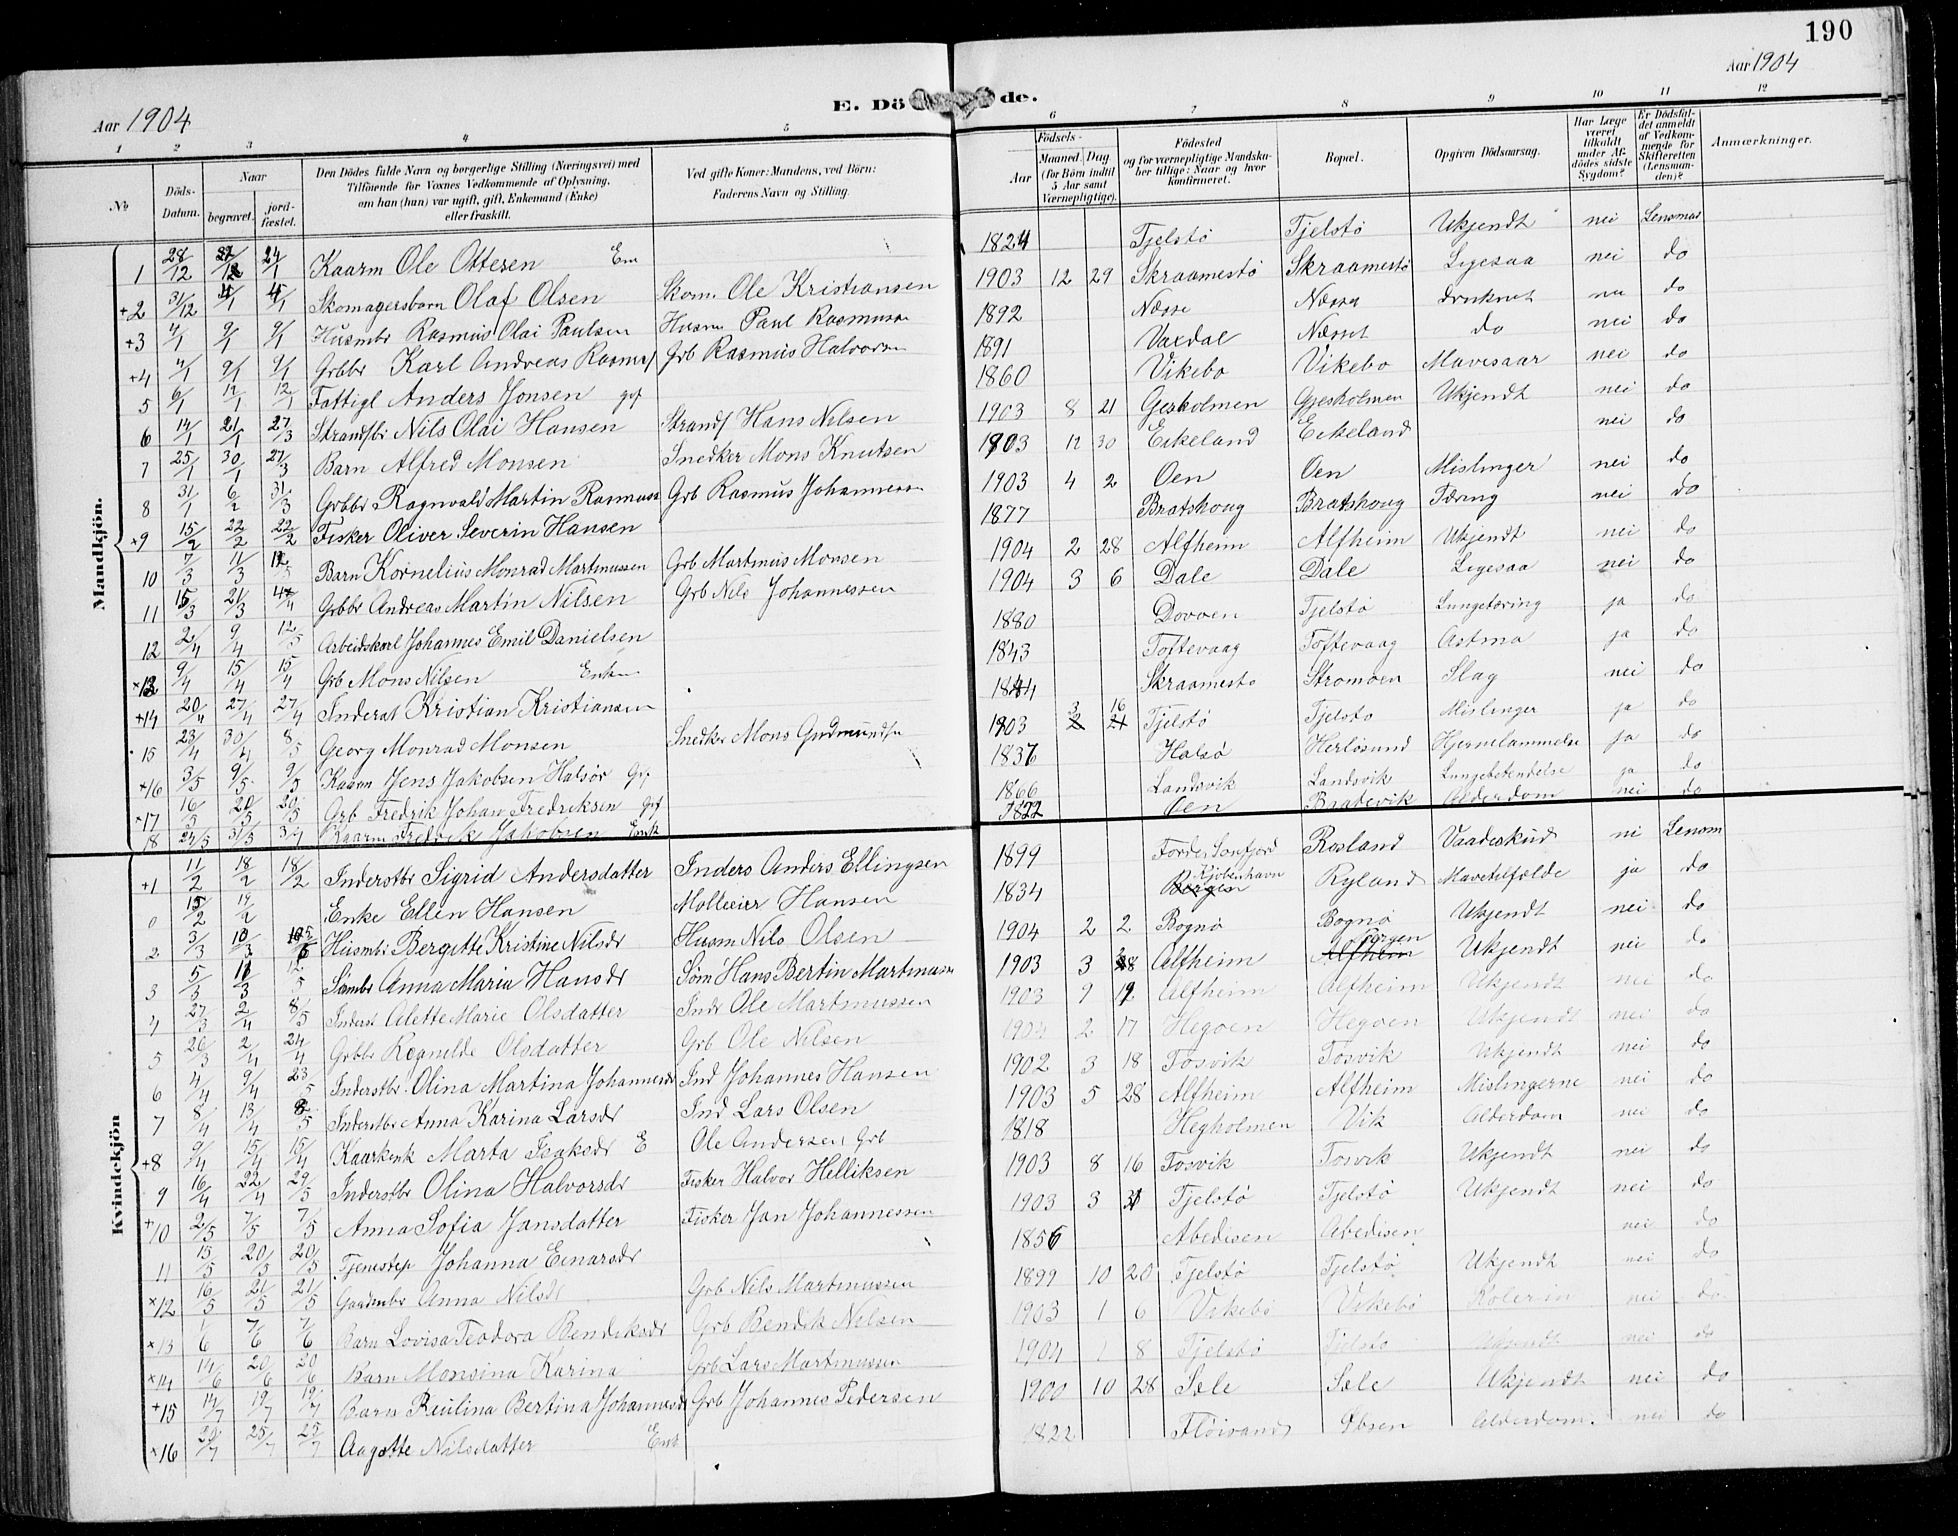 190
Aar 1904
Aar 1904
E. Dö de.
1 2 3 4 5 6 7 8 9 10 11 12
No
Döds-Datum.
Naar
begravet.
jord-fæstet.
Den Dödes fulde Navn og borgerlige Stilling (Næringsvei) med Tilföiende for Voxnes Vedkommende af Oplysning, om han (hun) var ugift, gift, Enkemand (Enke) eller fraskilt.
Ved gifte Koner: Mandens, ved Börn: Faderens Navn og Stilling.
Födsels-
Aar
Maaned. Dag
(for Börn indtil 5 Aar samt Værnepligtige).
Födested og for værnepligtige Mandskaber tillige: Naar og hvor konfirmeret.
Bopæl.
Opgiven Dödsaarsag.
Har Læge været tilkaldt under Afdödes sidste Sygdom?
Er Dödsfaldet anmeldt af Vedkommende for Skifteretten (Lensmanden)?
Anmærkninger.
Mandkjön.
1 28/12 24/1 Kaarm Ole Ottesen Em 1824 Tjelstö Tjelstö Ukjendt nei Lensman
+2 31/12 4/1 4/1 Skomagersbarn Olaf Olsen Skom. Ole Kristiansen 1903 12 29 Skraamestö Skraamestö Ligesaa nei do
+3 4/1 9/1 9/1 Husmbr Rasmus Olai Paulsen Husm Paul Rasmussn 1892 Næsse Næsset druknet nei do
+4 4/1 9/1 9/1 Grbbr Karl Andreas Rasmus Grb Rasmus Halvorsn 1891 Vaxdal Næsset do nei do
5 6/1 12/1 12/1 Fattigl Anders Jonsen gif 1860 Vikebo Vikebo Mavesaar nei do
6 14/1 21/1 27/3 Strandsbr Nils Olai Hansen Strands Hans Nilsen 1903 8 21 Gjesholmen Gjesholmen Ukjendt nei do
7 25/1 30/1 27/3 Barn Alfred Monsen Snedker Mons Knutsen 1903 12 30 Eikeland Eikeland nei do
8 31/1 6/2 31/3 Grbbr Ragnvald Martin Rasmuss Grb Rasmus Johannessn 1903 4 2 Oen Oen Mislinger nei do
+9 15/2 22/2 22/2 Fisker Oliver Severin Hansen 1877 Bratshoug Bratshoug Tæring nei do
10 7/3 11/3 Barn Kornelius Monrad Martinussen Grb Martinus Monsen 1904 2 28 Alfheim Alfheim Ukjendt nei do
11 15/3 21/3 Grbbr Andreas Martin Nilsen Grb Nils Johannessen 1904 3 6 Dale Dale Ligesaa nei do
12 2/4 9/4 12/5 Arbeidskarl Johannes Emil Danielsen 1880 Dovoen Tjelstö Lungetæring ja do
×13 9/4 15/4 15/4 Grb Mons Nilsen Enkm 1843 Toftevaag Toftevaag Astma ja do
+14 20/4 27/4 27/4 Inderst Kristian Kristiansen 1844 Skraamestö Stromoen Slag nei do
15 23/4 30/4 8/5 Georg Monrad Monsen Snedker Mons Gudmundsn 1903 3 16 Tjelstö Tjelsto Mislinger ja do
×16 3/5 9/5 9/5 Kaarm Jens Jakobsen Halsör Gif 1837 Halsö Herløsund Hjernelammelse ja do
×17 16/5 20/5 20/5 Grb Fredrik Johan Fredriksen Gif 1866 Landsvik Landsvik Lungebetendelse ja do
18 24/5 31/5 Kaarm Fredrik Jakobsen Enk 1822 Oen Bradevik Alderdom nei do
Kvindekjön
+1 11/2 18/2 18/2 Inderstbr Sigrid Andersdatter Inders Anders Ellingsen 1899 Förde Sönfjord Rosland Vaadeskud ni Lensm
0 15/2 19/2 Enke Ellen Hansen Molleeier Hansen 1834 Bergen Kjöbenhavn Ryland Mavetilfælde ja do
2 3/3 10/3 Husmbr Bergitte Kristine Nilsdr Husm Nils Olsen 1904 2 2 Bognö Bognö Ukjendt nei do
3 5/3 11/3 12/5 Sömbr Anna Maria Hansdr Söm Hans Bertin Martinussn 1903 3 28 Alfheim Alfheim Ukjendt nei do
4 27/3 2/4 8/5 Inderst Alette Marie Olsdatter Indr Ole Martinussen 1903 9 19 Alfheim Alfheim Ukjendt nei do
5 26/3 2/4 24/4 Grbbr Ragnilde Olsdatter Grb Ole Nilsen 1904 2 17 Hegoen Hegoen Ukjendt nei do
6 4/4 9/4 23/5 Inderstbr Olina Martina Johannesdr Ind Johannes Hansen 1902 3 18 Tosvik Tosvik Ukjendt nei do
7 8/4 13/4 8/5 Inderstbr Anna Karina Larsdr Ind Lars Olsen 1903 5 28 Alfheim Alfheim Mislingerne nei do
+8 9/4 15/4 15/4 Kaarkenk Marta Isaksdr E Ole Andersen Grb 1818 Hegholmen Vik Alderdom nei do
9 16/4 22/4 29/5 Inderstbr Olina Halvorsdr Fisker Halvor Helliksen 1903 8 16 Tosvik Tosvik Ukjendt nei do
+10 2/5 7/5 7/5 Anna Sofia Jansdatter Fisker Jan Johannessen 1903 3 31 Tjelstö Tjelstö Ukjendt nei do
11 15/5 20/5 20/5 Tjenestep Johanna Einarsdr 1856 Abedisen Abedisen nei do
×12 16/5 21/5 21/5 Gaardmbr Anna Nilsdr Grb Nils Martinussen 1899 10 20 Tjelstö Tjelstö Ukjendt nei do
×13 1/6 7/6 7/6 Barn Lovisa Teodora Bendiksdr Grb Bendik Nilsen 1903 1 6 Vikebö Vikebö Kolerin nei do
×14 14/6 20/6 20/6 Barn Monsina Karina Grb Lars Martinussen 1904 1 8 Tjelstö Tjelstö Ukjendt nei do
+15 14/7 19/7 19/7 Barn Paulina Bertina Johannesdr Grb Johannes Pedersen 1900 10 28 Sæle Sæle Ukjendt nei do
×16 20/7 25/7 25/7 Aagotte Nilsdatter Enk 1822 Flöisand Ebsen Alderdom. nei do